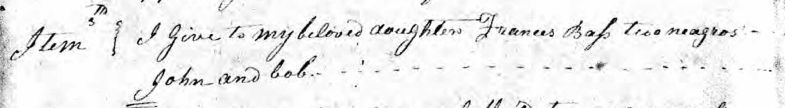 Item 5th { I Give to my beloved daughter Frances Bass two neagros
John and bob